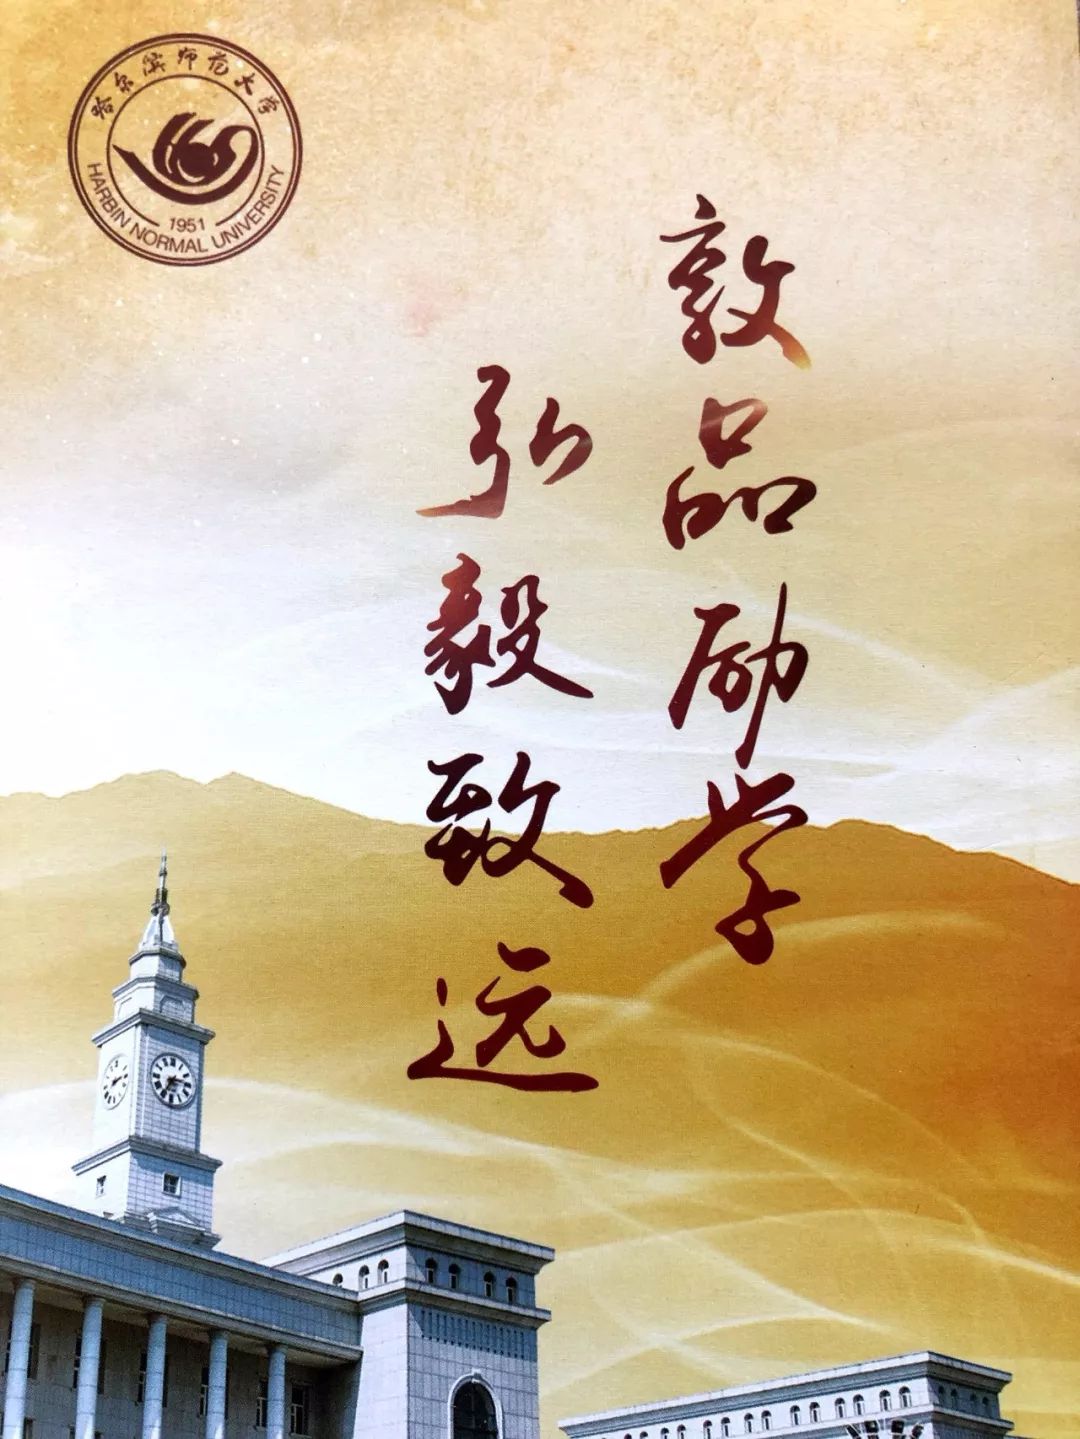 哈尔滨师范大学
1951
HARBIN NORMAL UNIVERSITY
敦品励学
弘毅致远